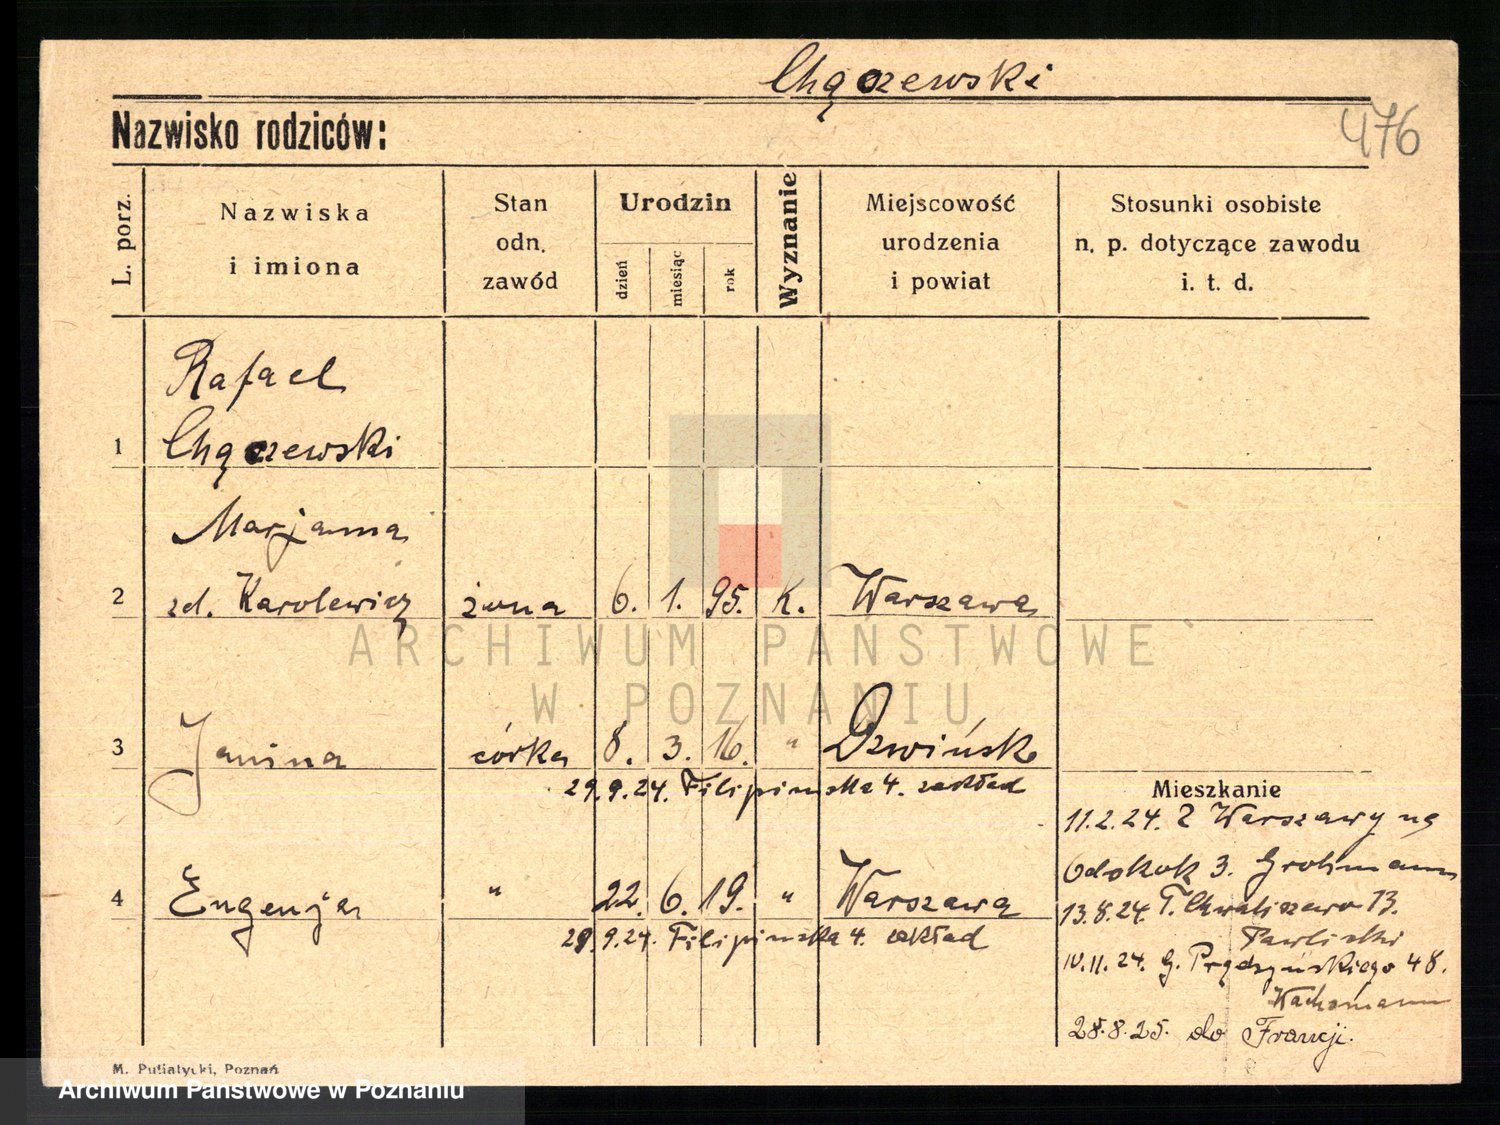 Chączewski
476
Nazwisko rodziców:
L. porz.
Nazwiska
i imiona
Stan
odn.
zawód
Urodzin
dzień
miesiąc
rok
Wyznanie
Miejscowość
urodzenia
i powiat
Stosunki osobiste
n. p. dotyczące zawodu
i. t. d.
Rafael
1 Chączewski
Marjanna
2 zd. Karolewicz żona 6. 1. 95. k. Warszawa
3 Janina córka 8. 3. 16. " Dźwińsk
29.9.24. Filipińska 4. zakład
4 Eugenja " 22. 6. 19. " Warszawa
29.9.24. Filipińska 4. zakład
Mieszkanie
11.2.24. Z Warszawy na
Odskok 3. Grohmann
13.8.24. T. Chwaliszewo 13.
Pawliski
10.11.24. G. Prądzyńskiego 48.
28.8.25. do Francji.
M. Putiatycki, Poznań
ARCHIWUM PAŃSTWOWE
W POZNANIU
Archiwum Państwowe w Poznaniu